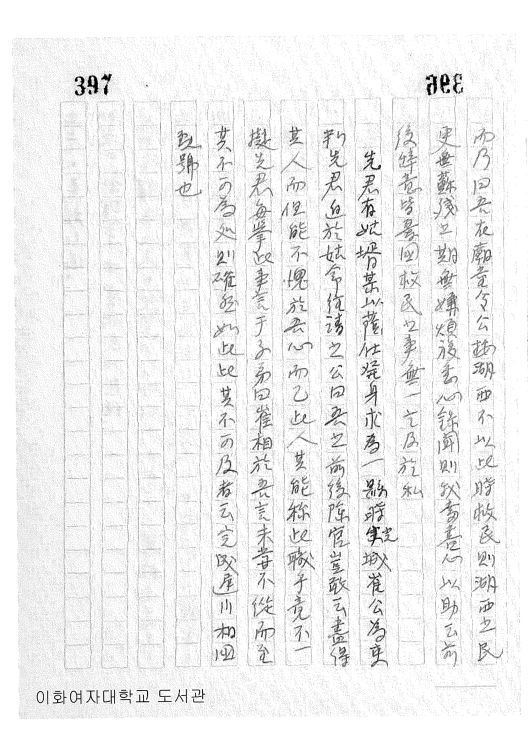 397
而乃曰吾在廟堂令公按湖西不以此時救民則湖西之民
更無蘇殘之期無嫌煩複悉心錄聞則我當盡心以助云前
後辭意皆憂国救民之事無一言及於私
先君有姑壻某以蔭仕發身求為一縣時完城崔公為吏
判先君迫於姑令徃請之公曰吾之前後除官豈敢云盡得
其人而但能不愧於吾心而已此人其能称此職乎竟不一
擬先君每擧此事言于子弟曰崔相於吾言未嘗不從而至
其不可為处則確然如此此其不可及者云完城遲川相国
勳號也
이화여자대학교 도서관